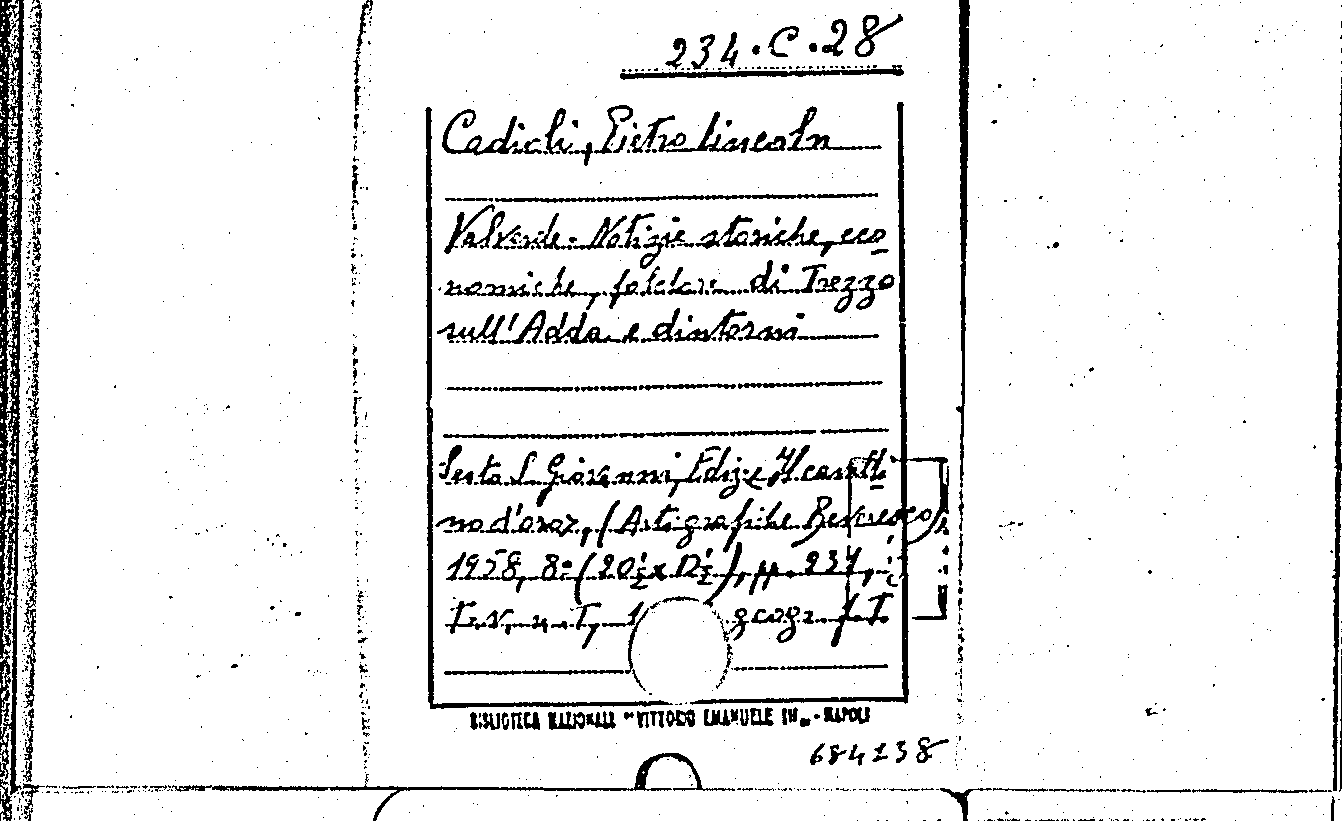 234.C.28
Cadioli, Pietro Lincoln
Valverde. Notizie storiche, eco
nomiche, folclore di Trezzo
sull'Adda e dintorni
Sesto S. Giovanni, Ediz. Il caratti
no d'oro, (Arti grafiche Beveresco)
1958, 8° (20½x12½), pp. 237,
geogr. f.T.
BIBLIOTECA NAZIONALE "VITTORIO EMANUELE III" - NAPOLI
684138